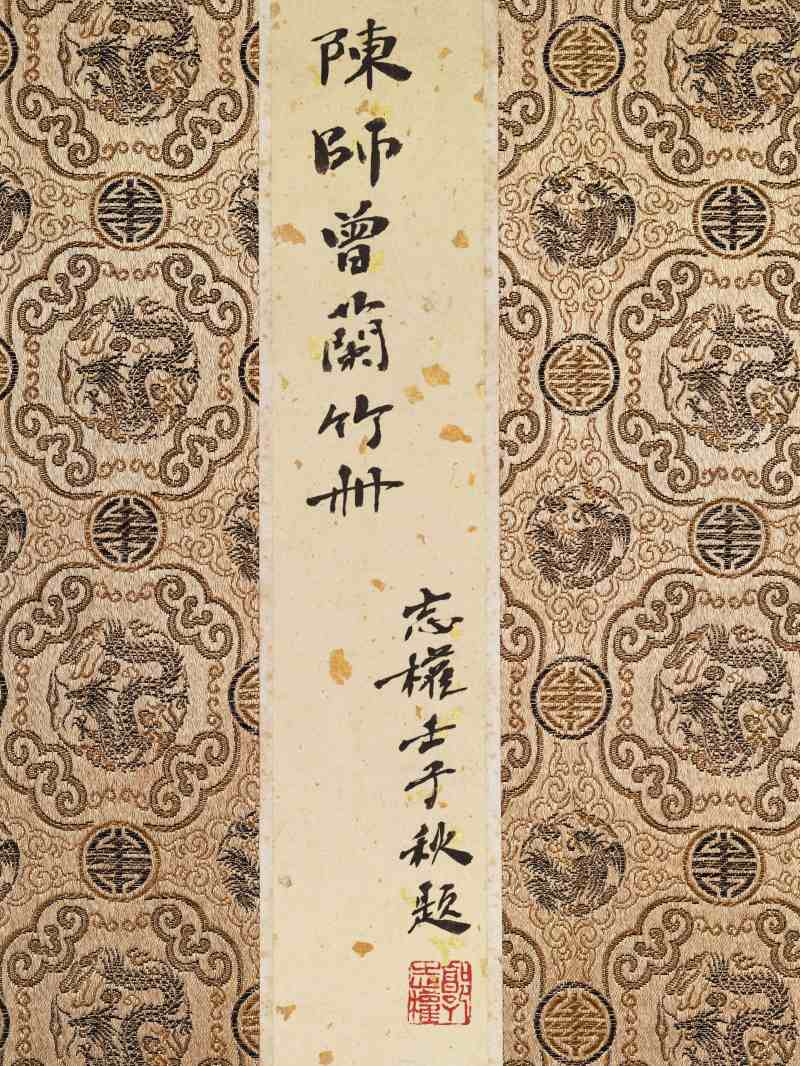 陳師曾蘭竹冊
志權壬子秋題